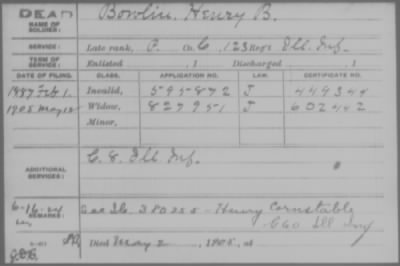 DEAD
NAME OF SOLDIER: Bowlin, Henry B.
SERVICE: Late rank, P. Co. C, 123 Reg't Ill. Inf.
TERM OF SERVICE: Enlisted , 1 Discharged , 1
DATE OF FILING. CLASS. APPLICATION NO. LAW. CERTIFICATE NO.
1887 Feb 1. Invalid, 595872 J 449344
1905 May 12 Widow, 827951 J 602442
Minor,
ADDITIONAL SERVICES: C. E. Ill Inf.
6-16-24
REMARKS: See Ib. 380255 - Henry Constable
G 60 Ill Inf
Died May 2, 1905, at